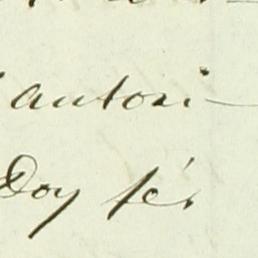 autori-
Doy fé,